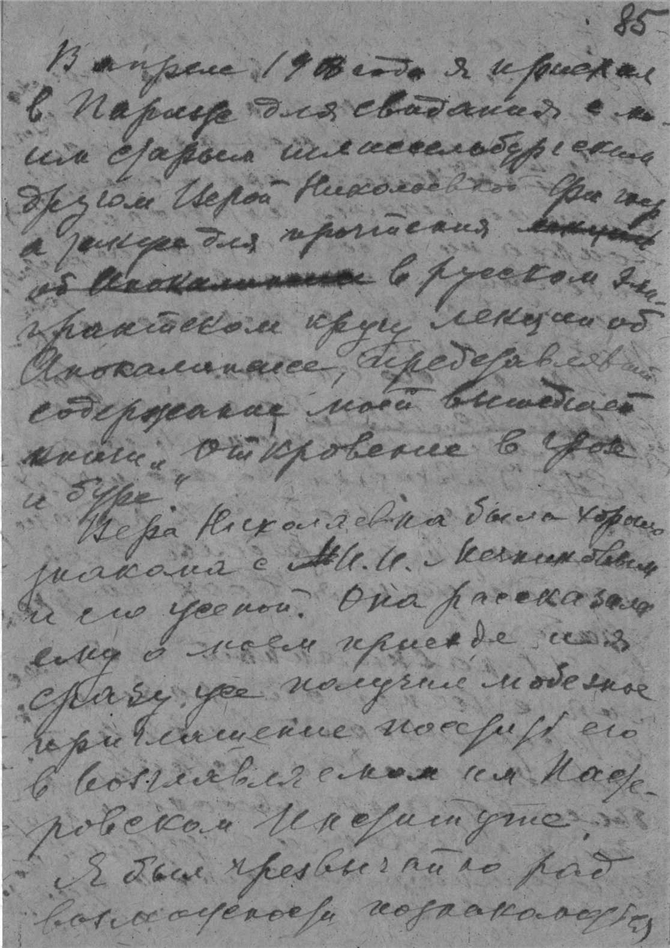 85
В апреле 190 года я приехал
в Париж для свидания с мо-
им старым шлиссельбургским
другом Верой Николаевной Фигнер
а также для прочтения лекции
об Апокалипсисе в русском эми-
грантском кругу лекции об
Апокалипсисе, представлявшей
содержание моей вышедшей
книги „Откровение в грозе
и буре"
Вера Николаевна была хорошо
знакома с И. И. Мечниковым
и его женой. Она рассказала
ему о моем приезде и я
сразу же получил любезное
приглашение посетить его
в возглавляемом им Пасте-
ровском Институте.
Я был чрезвычайно рад
возможности познакомиться